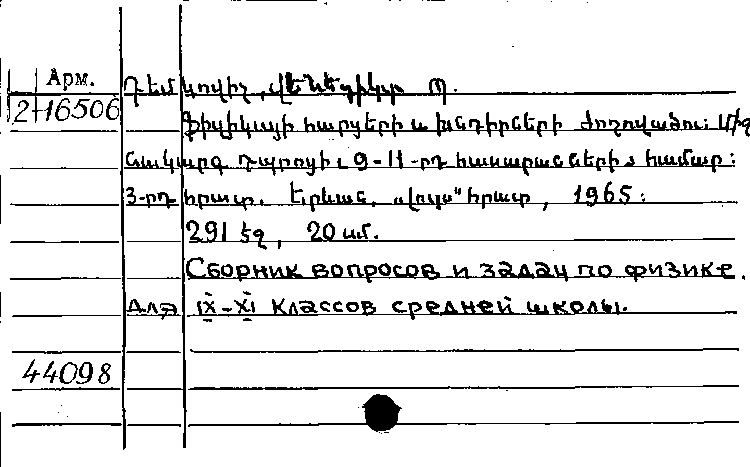 Арм.
Դեմկովիչ, Վենեդիկտ Պ.
2-16506
Ֆիզիկայի հարցերի և խնդիրների ժողովածու: Միջ
նակարգ դպրոցի 9-11-րդ դասարանների համար:
3-րդ հրատ. Երևան, „Լույս" հրատ, 1965:
291 էջ, 20 սմ.
Сборник вопросов и задач по физике.
Для IX-XI классов средней школы.
44098